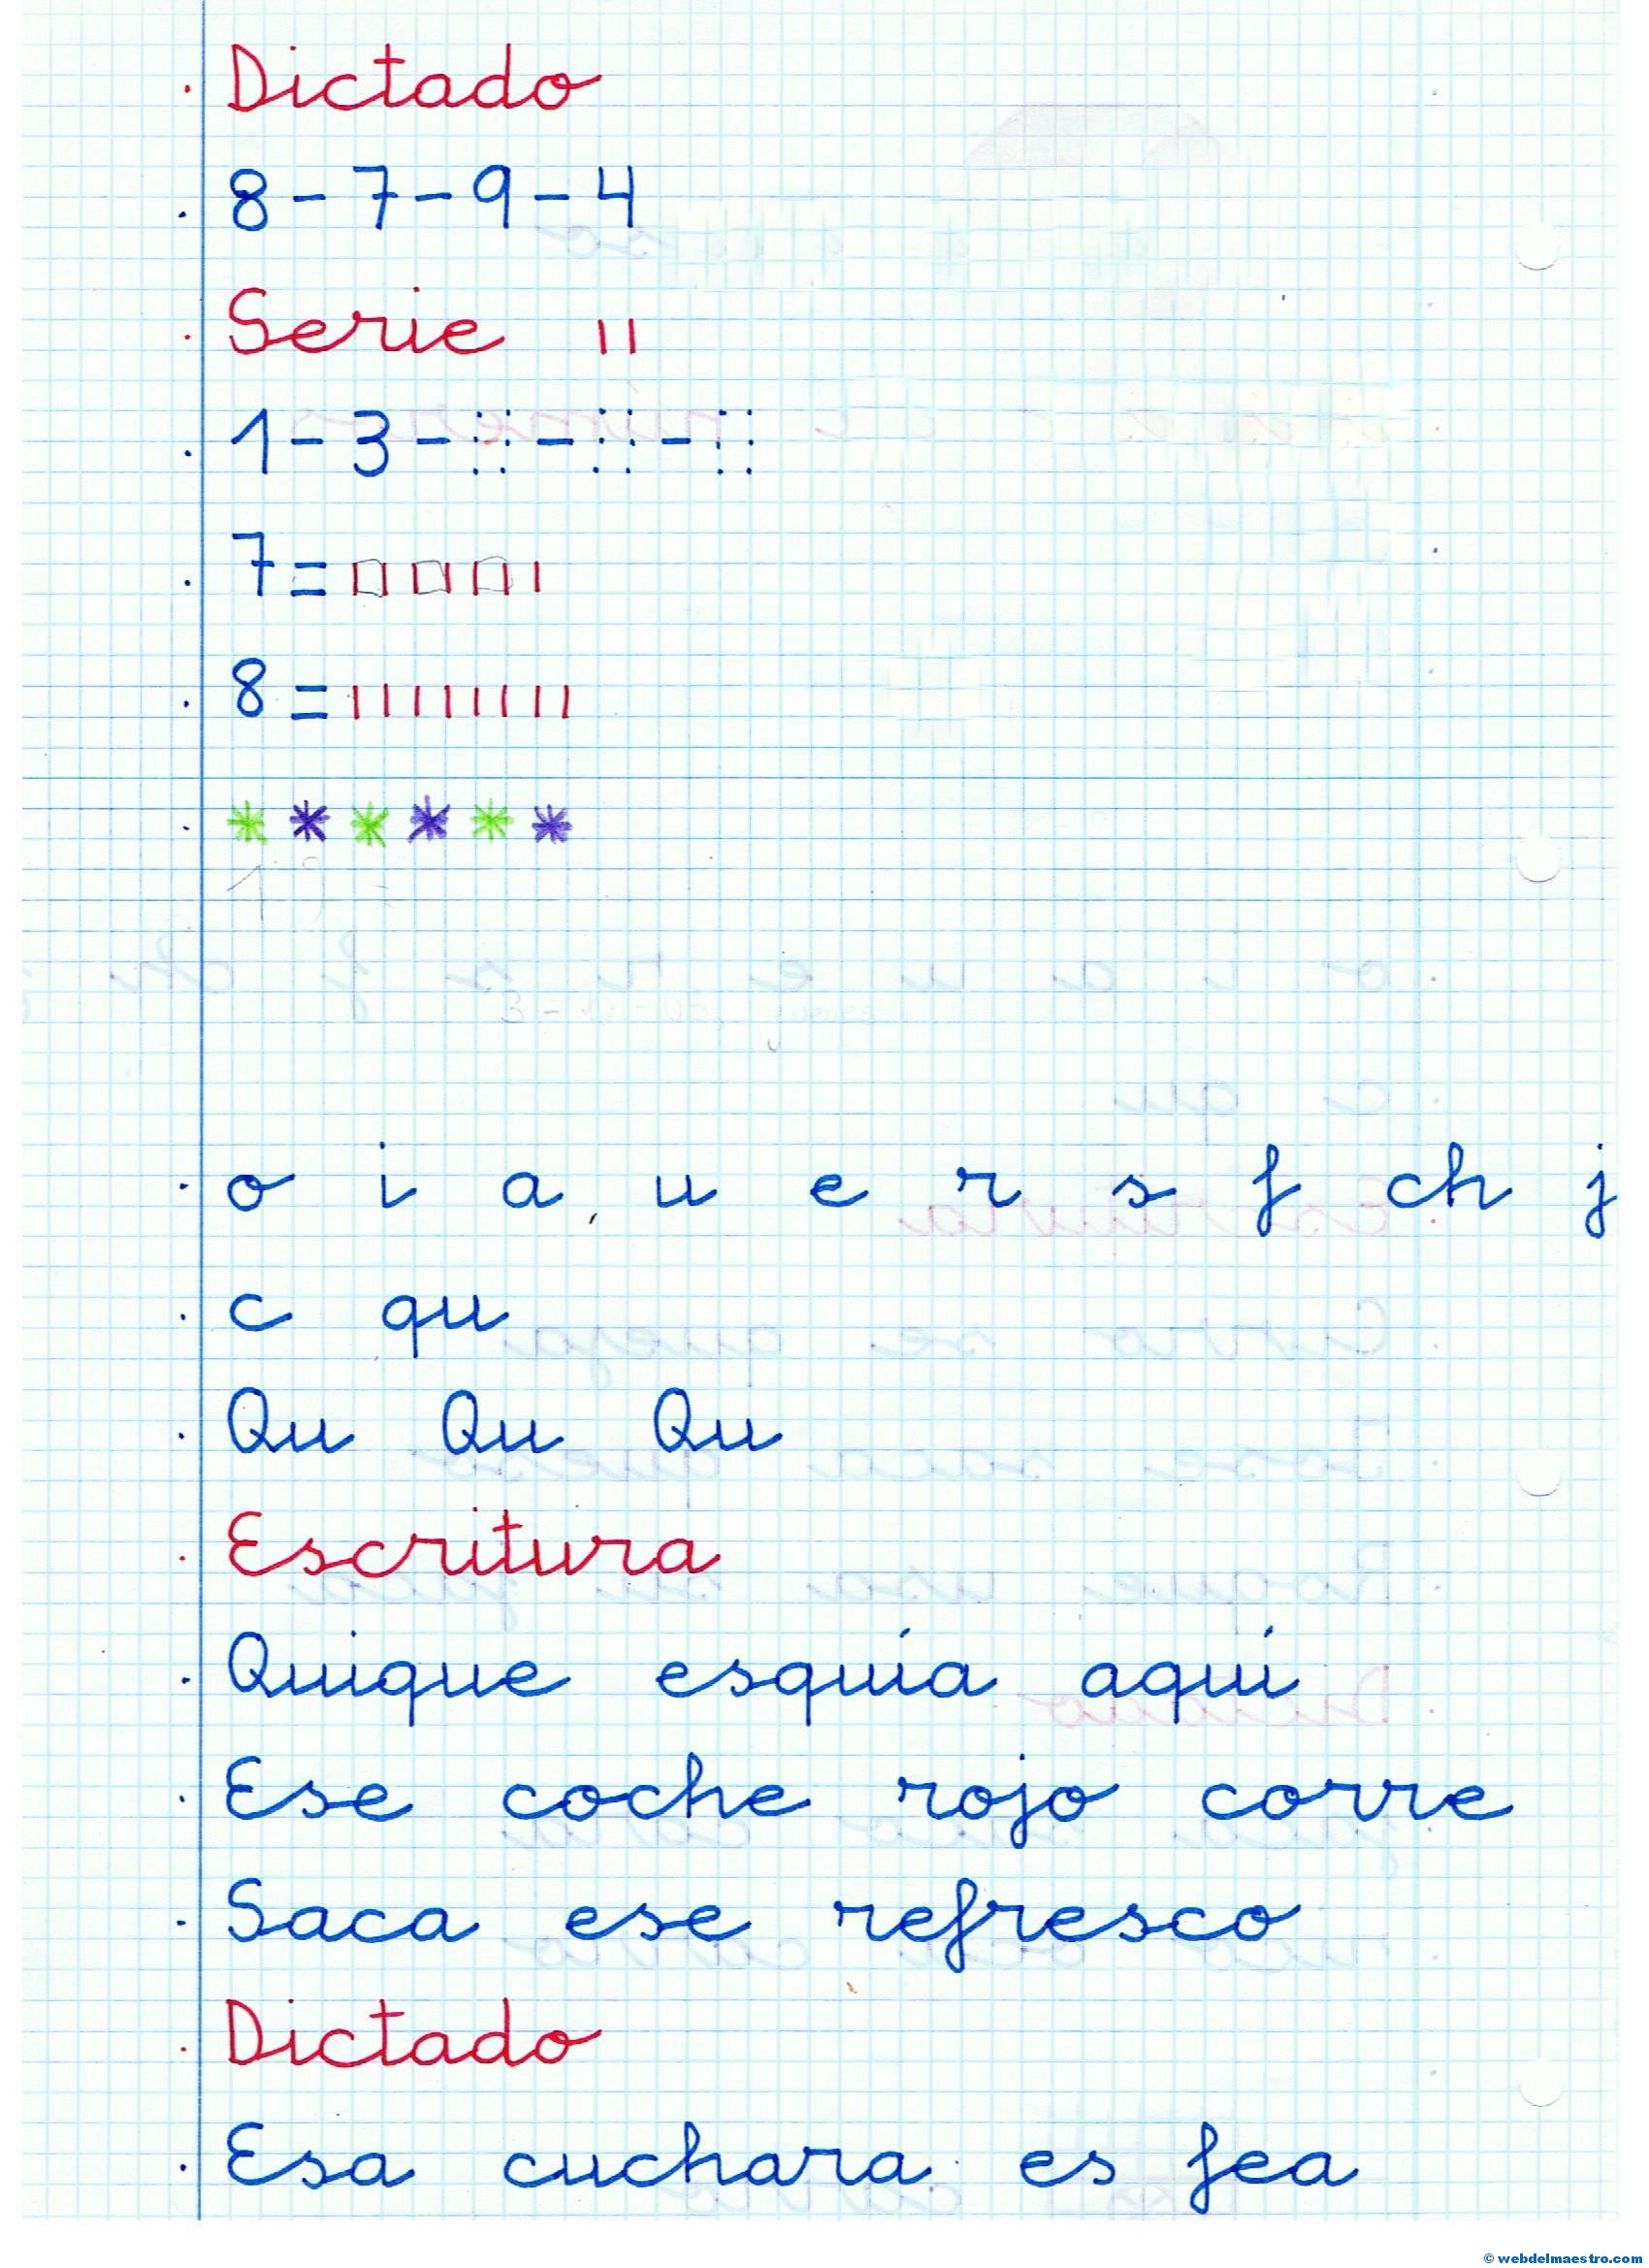 Dictado
8 - 7 - 9 - 4
Serie II
1 - 3 - :: - :: - ::
7 =
8 = IIIIIIII
o i a u e r s f ch j
c qu
Qu Qu Qu
Escritura
Quique esquía aquí
Ese coche rojo corre
Saca ese refresco
Dictado
Esa cuchara es fea
© webdelmaestro.com